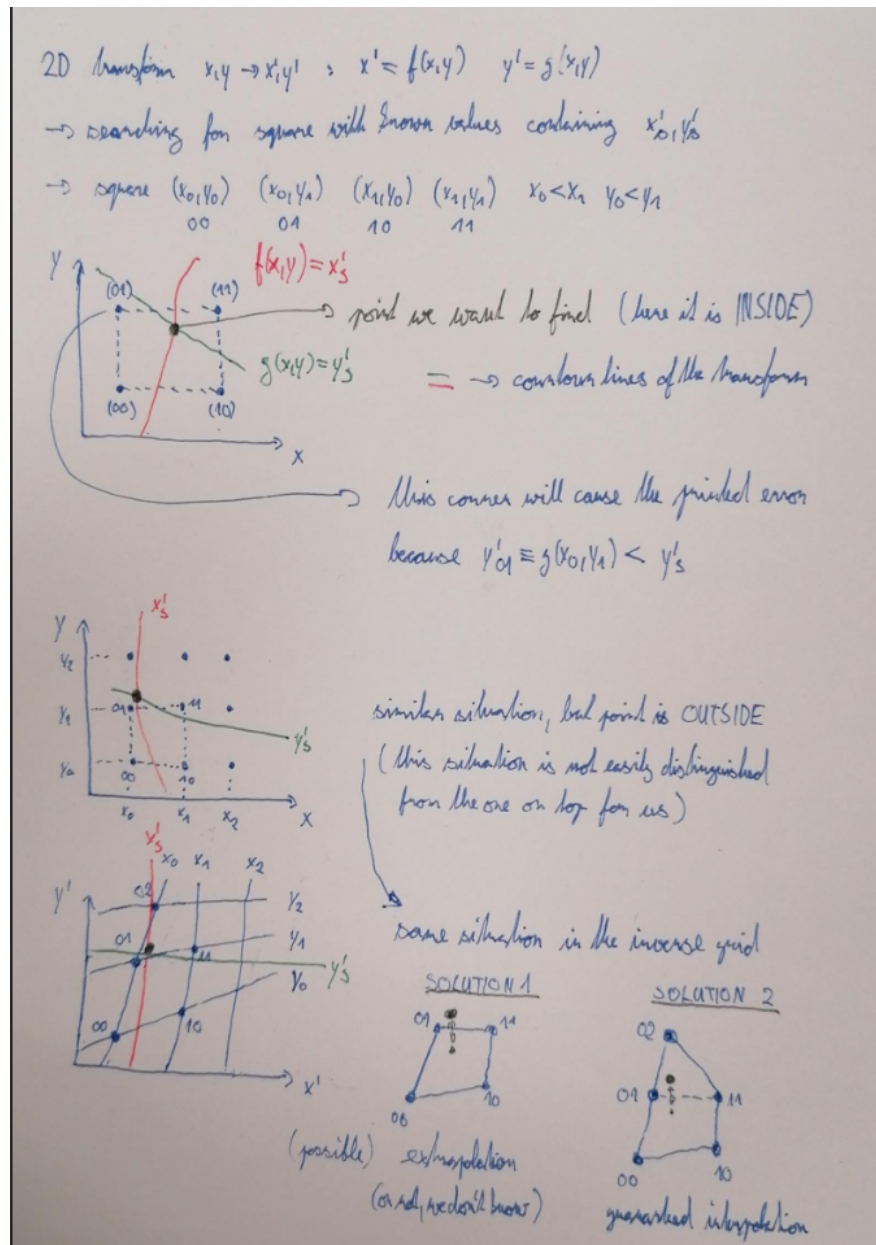 2D transform x,y → x',y' : x' = f(x,y) y' = g(x,y)
→ searching for square with known values containing x's, y's
→ square (x0,y0) (x0,y1) (x1,y0) (x1,y1) x0<x1 y0<y1
00 01 10 11
Y
f(x,y) = x's
(01) (11)
→ point we want to find (here it is INSIDE)
g(x,y) = y's
= → countour lines of the transform
(00) (10)
X
this corner will cause the printed error
because y'01 ≡ g(x0,y1) < y's
x's
Y
y2
01 11
y1
y's
y0
00 10
x0 x1 x2 X
similar situation, but point is OUTSIDE
(this situation is not easily distinguished
from the one on top for us)
x's x0 x1 x2
Y'
02
y2
01 11
y1
y's
y0
00 10
X'
same situation in the inverse grid
SOLUTION 1
01 11
00 10
(possible) extrapolation
(or not, we don't know)
SOLUTION 2
02
01 11
00 10
guaranteed interpolation